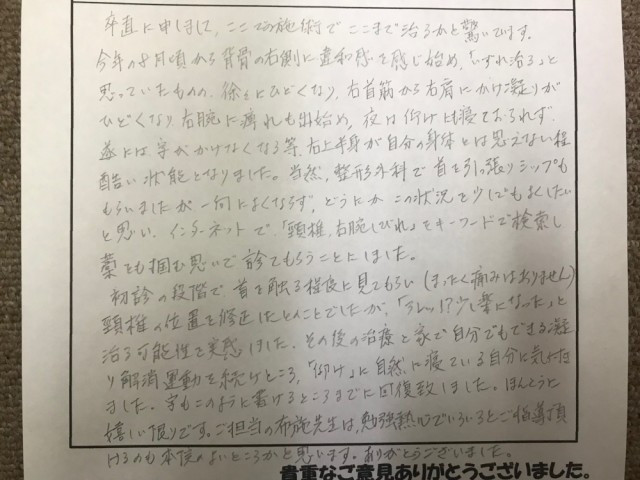 率直に申しまして、ここでの施術でここまで治るかと驚いています。
今年の8月頃から背骨の右側に違和感を感じ始め、「いずれ治る」と
思っていたものの、徐々にひどくなり、右首筋から右肩にかけ凝りが
ひどくなり右腕に痺れも出始め、夜は仰けにも寝ておられず
遂には字がかけなくなる等、右上半身が自分の身体とは思えない程
酷い状態となりました。当然、整形外科で首を引っ張りシップも
もらいましたが一向によくならず、どうにかこの状況を少しでもよくしたい
と思い、インターネットで、「頸椎、右腕しびれ」をキーワードで検索し
藁をも掴む思いで診てもらうことにしました。
初診の段階で首を触る程度に見てもらい(まったく痛みはありません)
頸椎の位置を修正したとのことでしたが、「アレッ!?少し楽になった」と
治る可能性を実感しました。その後の治療と家で自分でもできる凝
り解消運動を続けたところ、「仰け」に自然に寝ている自分に気付き
ました。字もこのように書けるところまでに回復致しました。ほんとうに
嬉しい限りです。ご担当の布施先生は、勉強熱心でいろいろとご指導頂
けるのも本院のよいところかと思います。ありがとうございました。
貴重なご意見ありがとうございました。